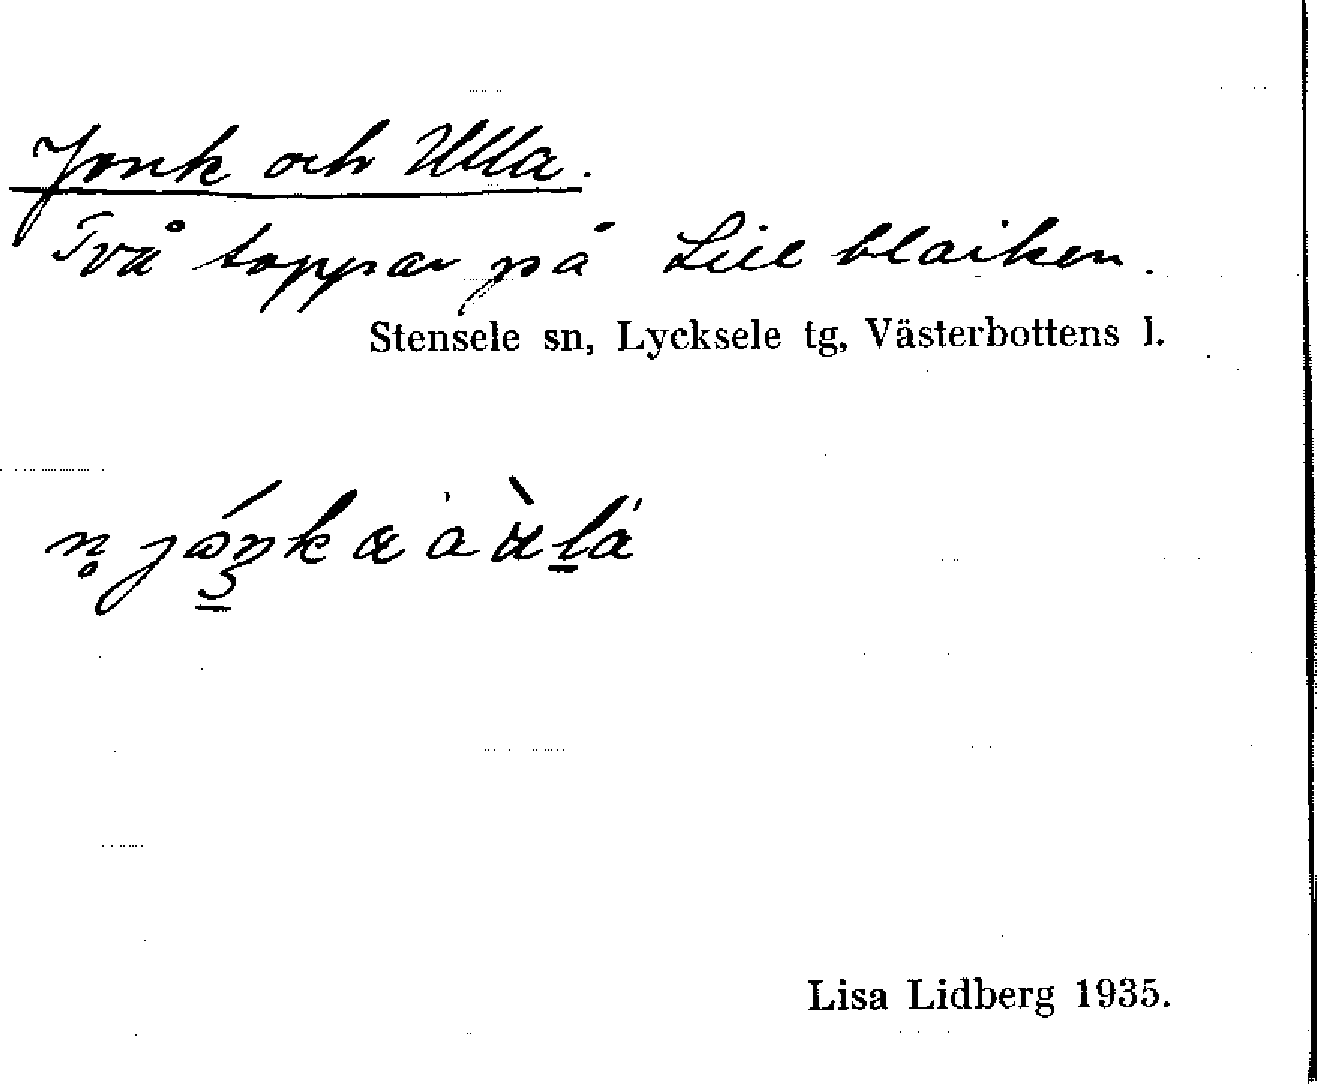 Jonk och Ulla.
Två toppar på Lill blaiken.
Stensele sn, Lycksele tg, Västerbottens l.
Lisa Lidberg 1935.